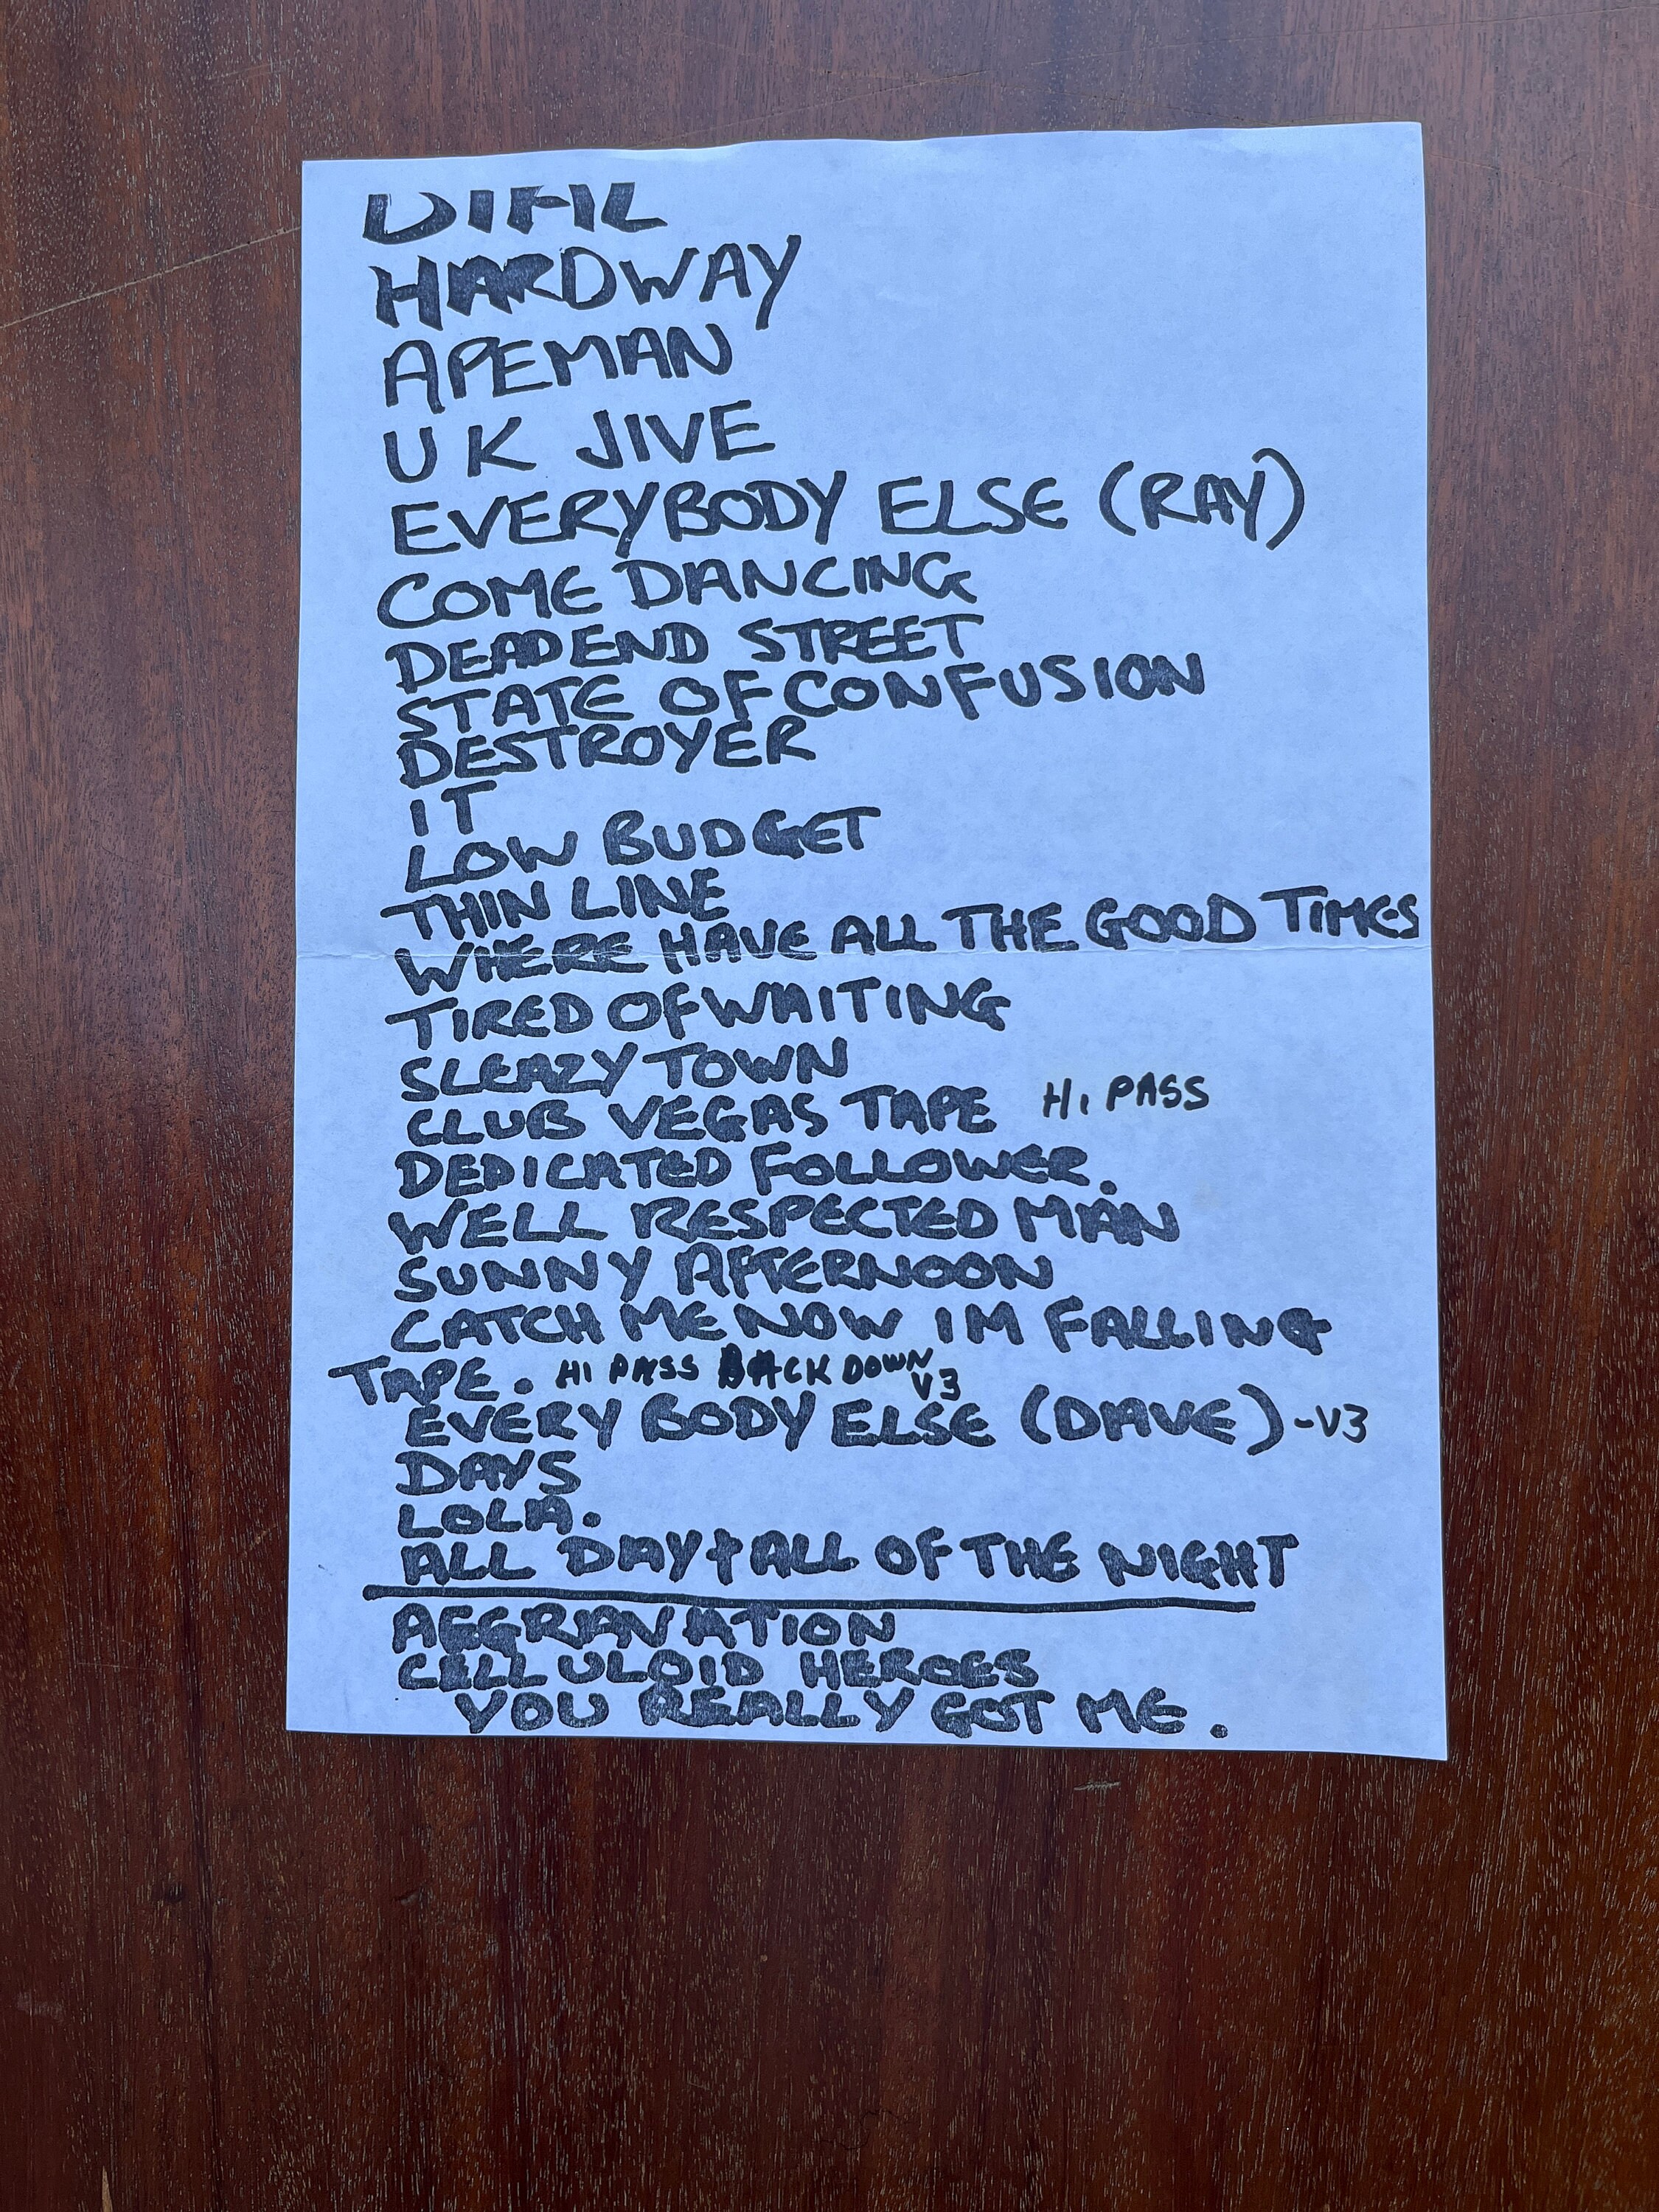 HARDWAY
APEMAN
UK JIVE
EVERYBODY ELSE (RAY)
COME DANCING
DEADEND STREET
STATE OF CONFUSION
DESTROYER
IT
LOW BUDGET
THIN LINE
WHERE HAVE ALL THE GOOD TIMES
TIRED OF WAITING
SLEAZY TOWN
CLUB VEGAS TAPE HI PASS
DEDICATED FOLLOWER.
WELL RESPECTED MAN
SUNNY AFTERNOON
CATCH ME NOW IM FALLING
TAPE. HI PASS BACK DOWN V3
EVERY BODY ELSE (DAVE) -V3
DAYS
LOLA.
ALL DAY + ALL OF THE NIGHT
AGGRAVATION
CELLULOID HEROES
YOU REALLY GOT ME.